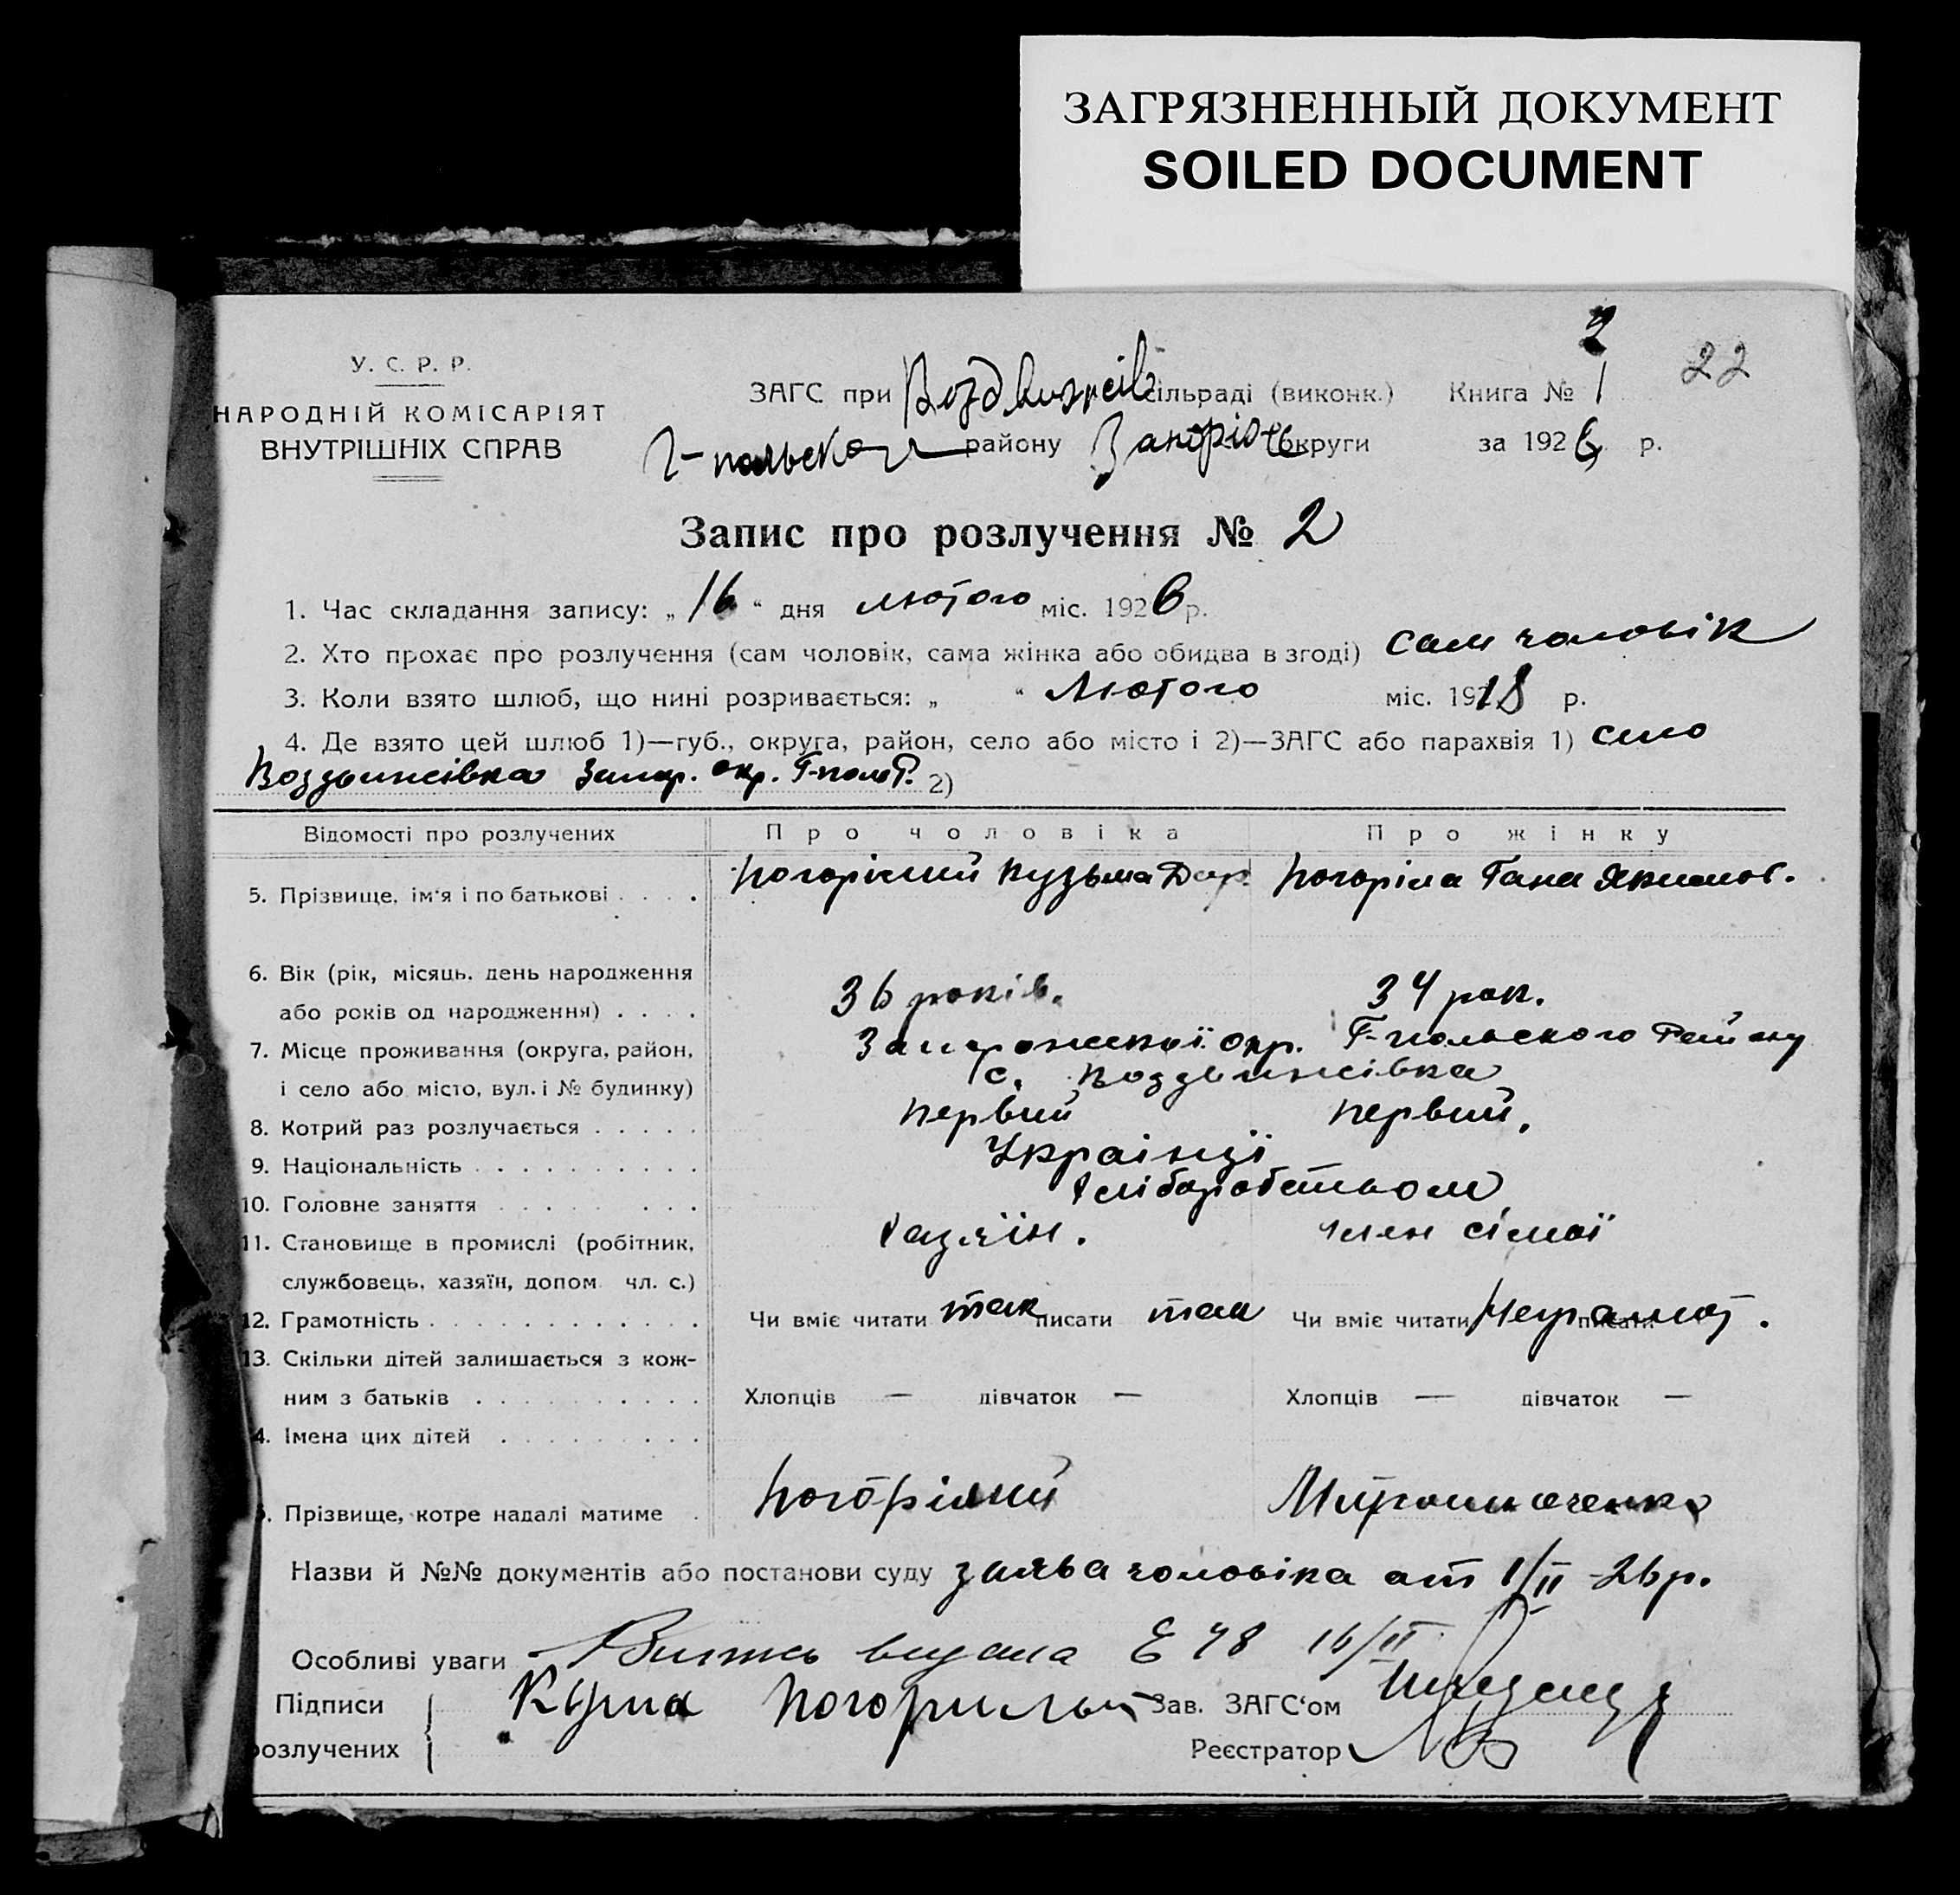 ЗАГРЯЗНЕННЫЙ ДОКУМЕНТ
SOILED DOCUMENT
У. С. Р. Р.
НАРОДНІЙ КОМІСАРІЯТ
ВНУТРІШНІХ СПРАВ
2
22
ЗАГС при Воздвижсів сільраді (виконк.) Книга № 1
Г-польського району Запоріж округи за 1926 р.
Запис про розлучення № 2
1. Час складання запису: „16“ дня лютого міс. 1926 р.
2. Хто прохає про розлучення (сам чоловік, сама жінка або обидва в згоді) сам чоловік
3. Коли взято шлюб, що нині розривається: „ “ Лютого міс. 1918 р.
4. Де взято цей шлюб 1)—губ., округа, район, село або місто і 2)—ЗАГС або парахвія 1) село
Воздвижівка Запор. окр. Г-пол Р. 2)
Відомості про розлучених Про чоловіка Про жінку
5. Прізвище, ім'я і по батькові . . . . Погорілий Кузьма Погоріла Гана Якимов.
6. Вік (рік, місяць, день народження
або років од народження) . . . . 36 років. 34 рок.
7. Місце проживання (округа, район, Запорожської окр. Г-польского Району
і село або місто, вул. і № будинку) с. Воздвижівка
8. Котрий раз розлучається . . . . . первий первий.
9. Національність . . . . . . . . . . Українці
10. Головне заняття . . . . . . . . Хліборобством
11. Становище в промислі (робітник, Хазяїн. член сімої
службовець, хазяїн, допом. чл. с.)
12. Грамотність . . . . . . . . . . . . Чи вміє читати так писати так Чи вміє читати Неграмот. писати
13. Скільки дітей залишається з кож-
ним з батьків . . . . . . . . . . Хлопців — дівчаток — Хлопців — дівчаток —
4. Імена цих дітей . . . . . . . . .
5. Прізвище, котре надалі матиме . Погорілий Мирошниченко
Назви й №№ документів або постанови суду заява чоловіка от 1/II -26 р.
Особливі уваги Витяг видана 16/II
Підписи Погорилый Зав. ЗАГС‘ом
розлучених Реєстратор